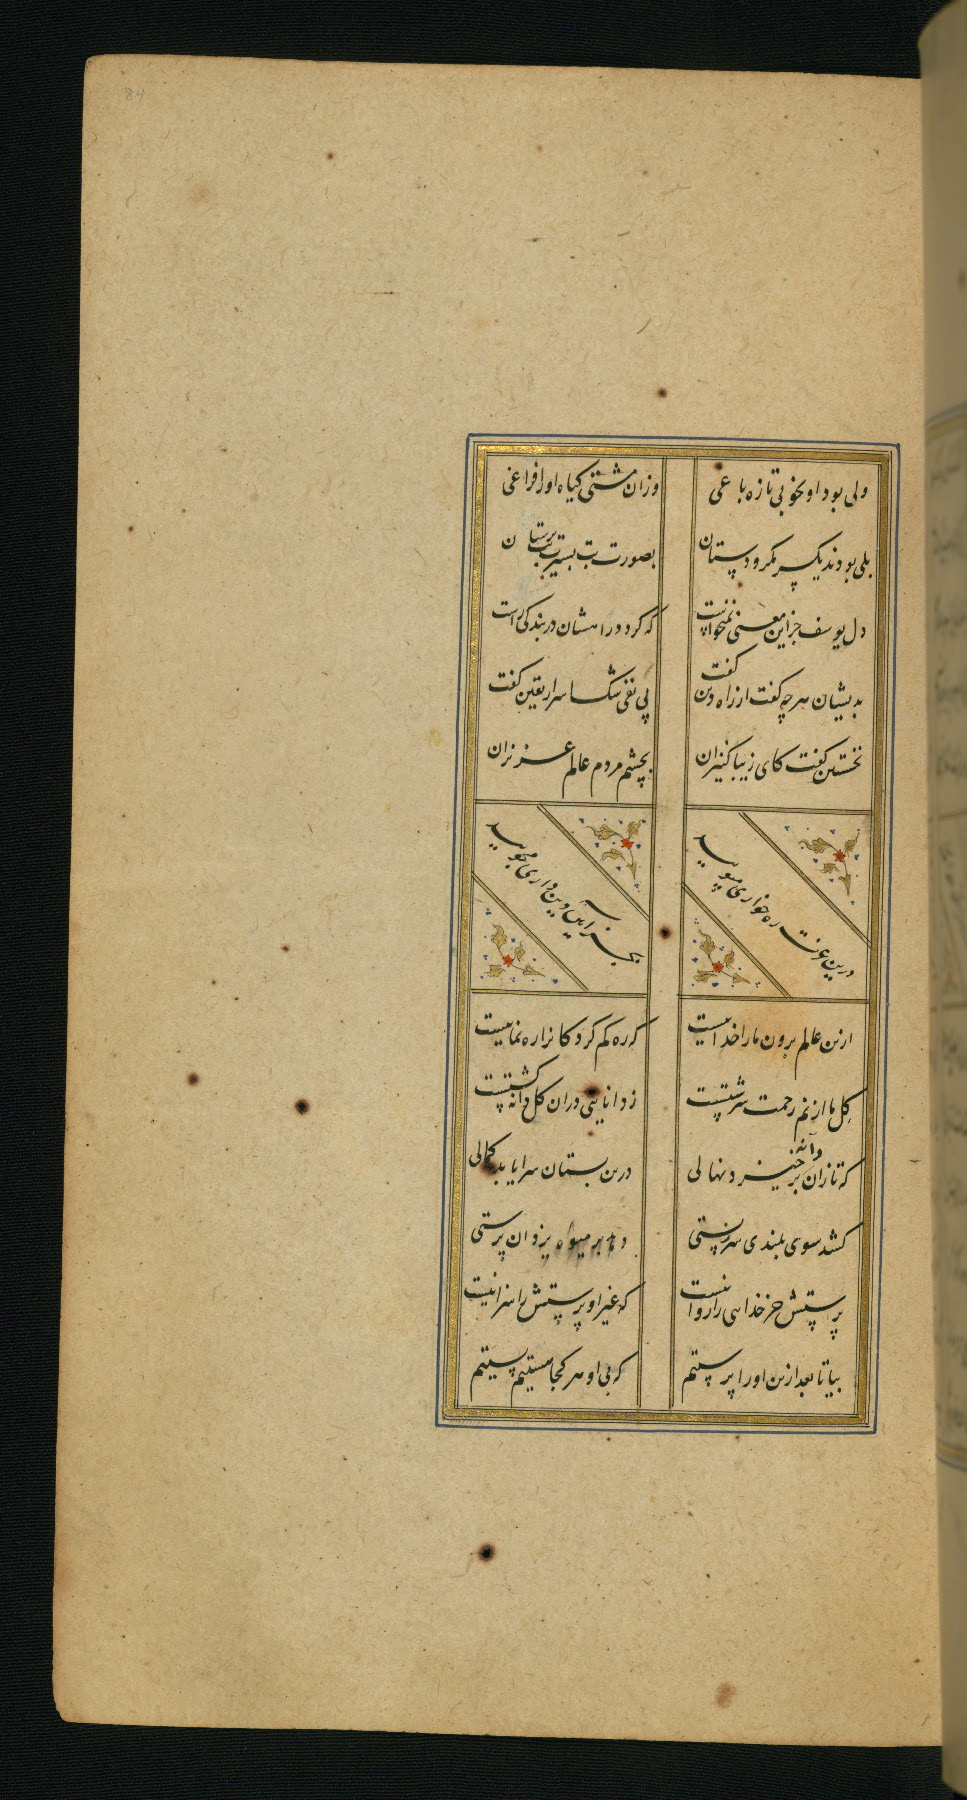 84
ولی بود او بخوبی تازه باغی وزان مشتی گیاه او را فراغی
بلی بودند یکسر مکر و دستان بصورت بت بسیرت بت پرستان
دل یوسف جز این معنی نمیخواست که گردد راهشان در بندگی راست
بدیشان هر چه گفت از راه دین گفت پی نفی شک اسرار یقین گفت
نخستین گفت کای زیبا کنیزان بچشم مردم عالم عزیزان
درین عزت ره خواری مپویید بجز آیین دین داری مجویید
ازین عالم برون ما را خداییست که ره گم کردگانرا ره نماییست
گل ما از نم رحمت سرشتست ز دانایی در آن گل دانه کشتست
که تا زان دانه برخیزد نهالی درین بستان سرا یابد کمالی
کشد سوی بلندی سر ز پستی دهد بر میوهٔ یزدان پرستی
پرستش جز خدایی را روا نیست که غیر او پرستش را سزا نیست
بیا تا بعد ازین او را پرستیم که بی او هر کجا هستیم پستیم